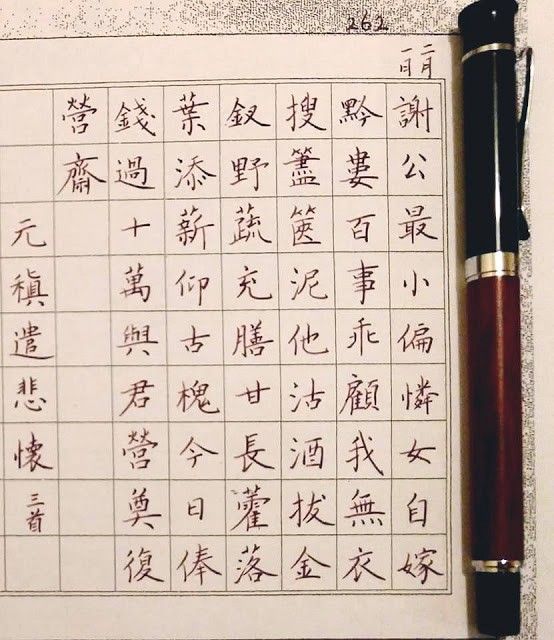 262
二月
一日
謝公最小偏憐女自嫁
黔婁百事乖顧我無衣
搜藎篋泥他沽酒拔金
釵野蔬充膳甘長藿落
葉添薪仰古槐今日俸
錢過十萬與君營奠復
營齋
元稹遣悲懷三首